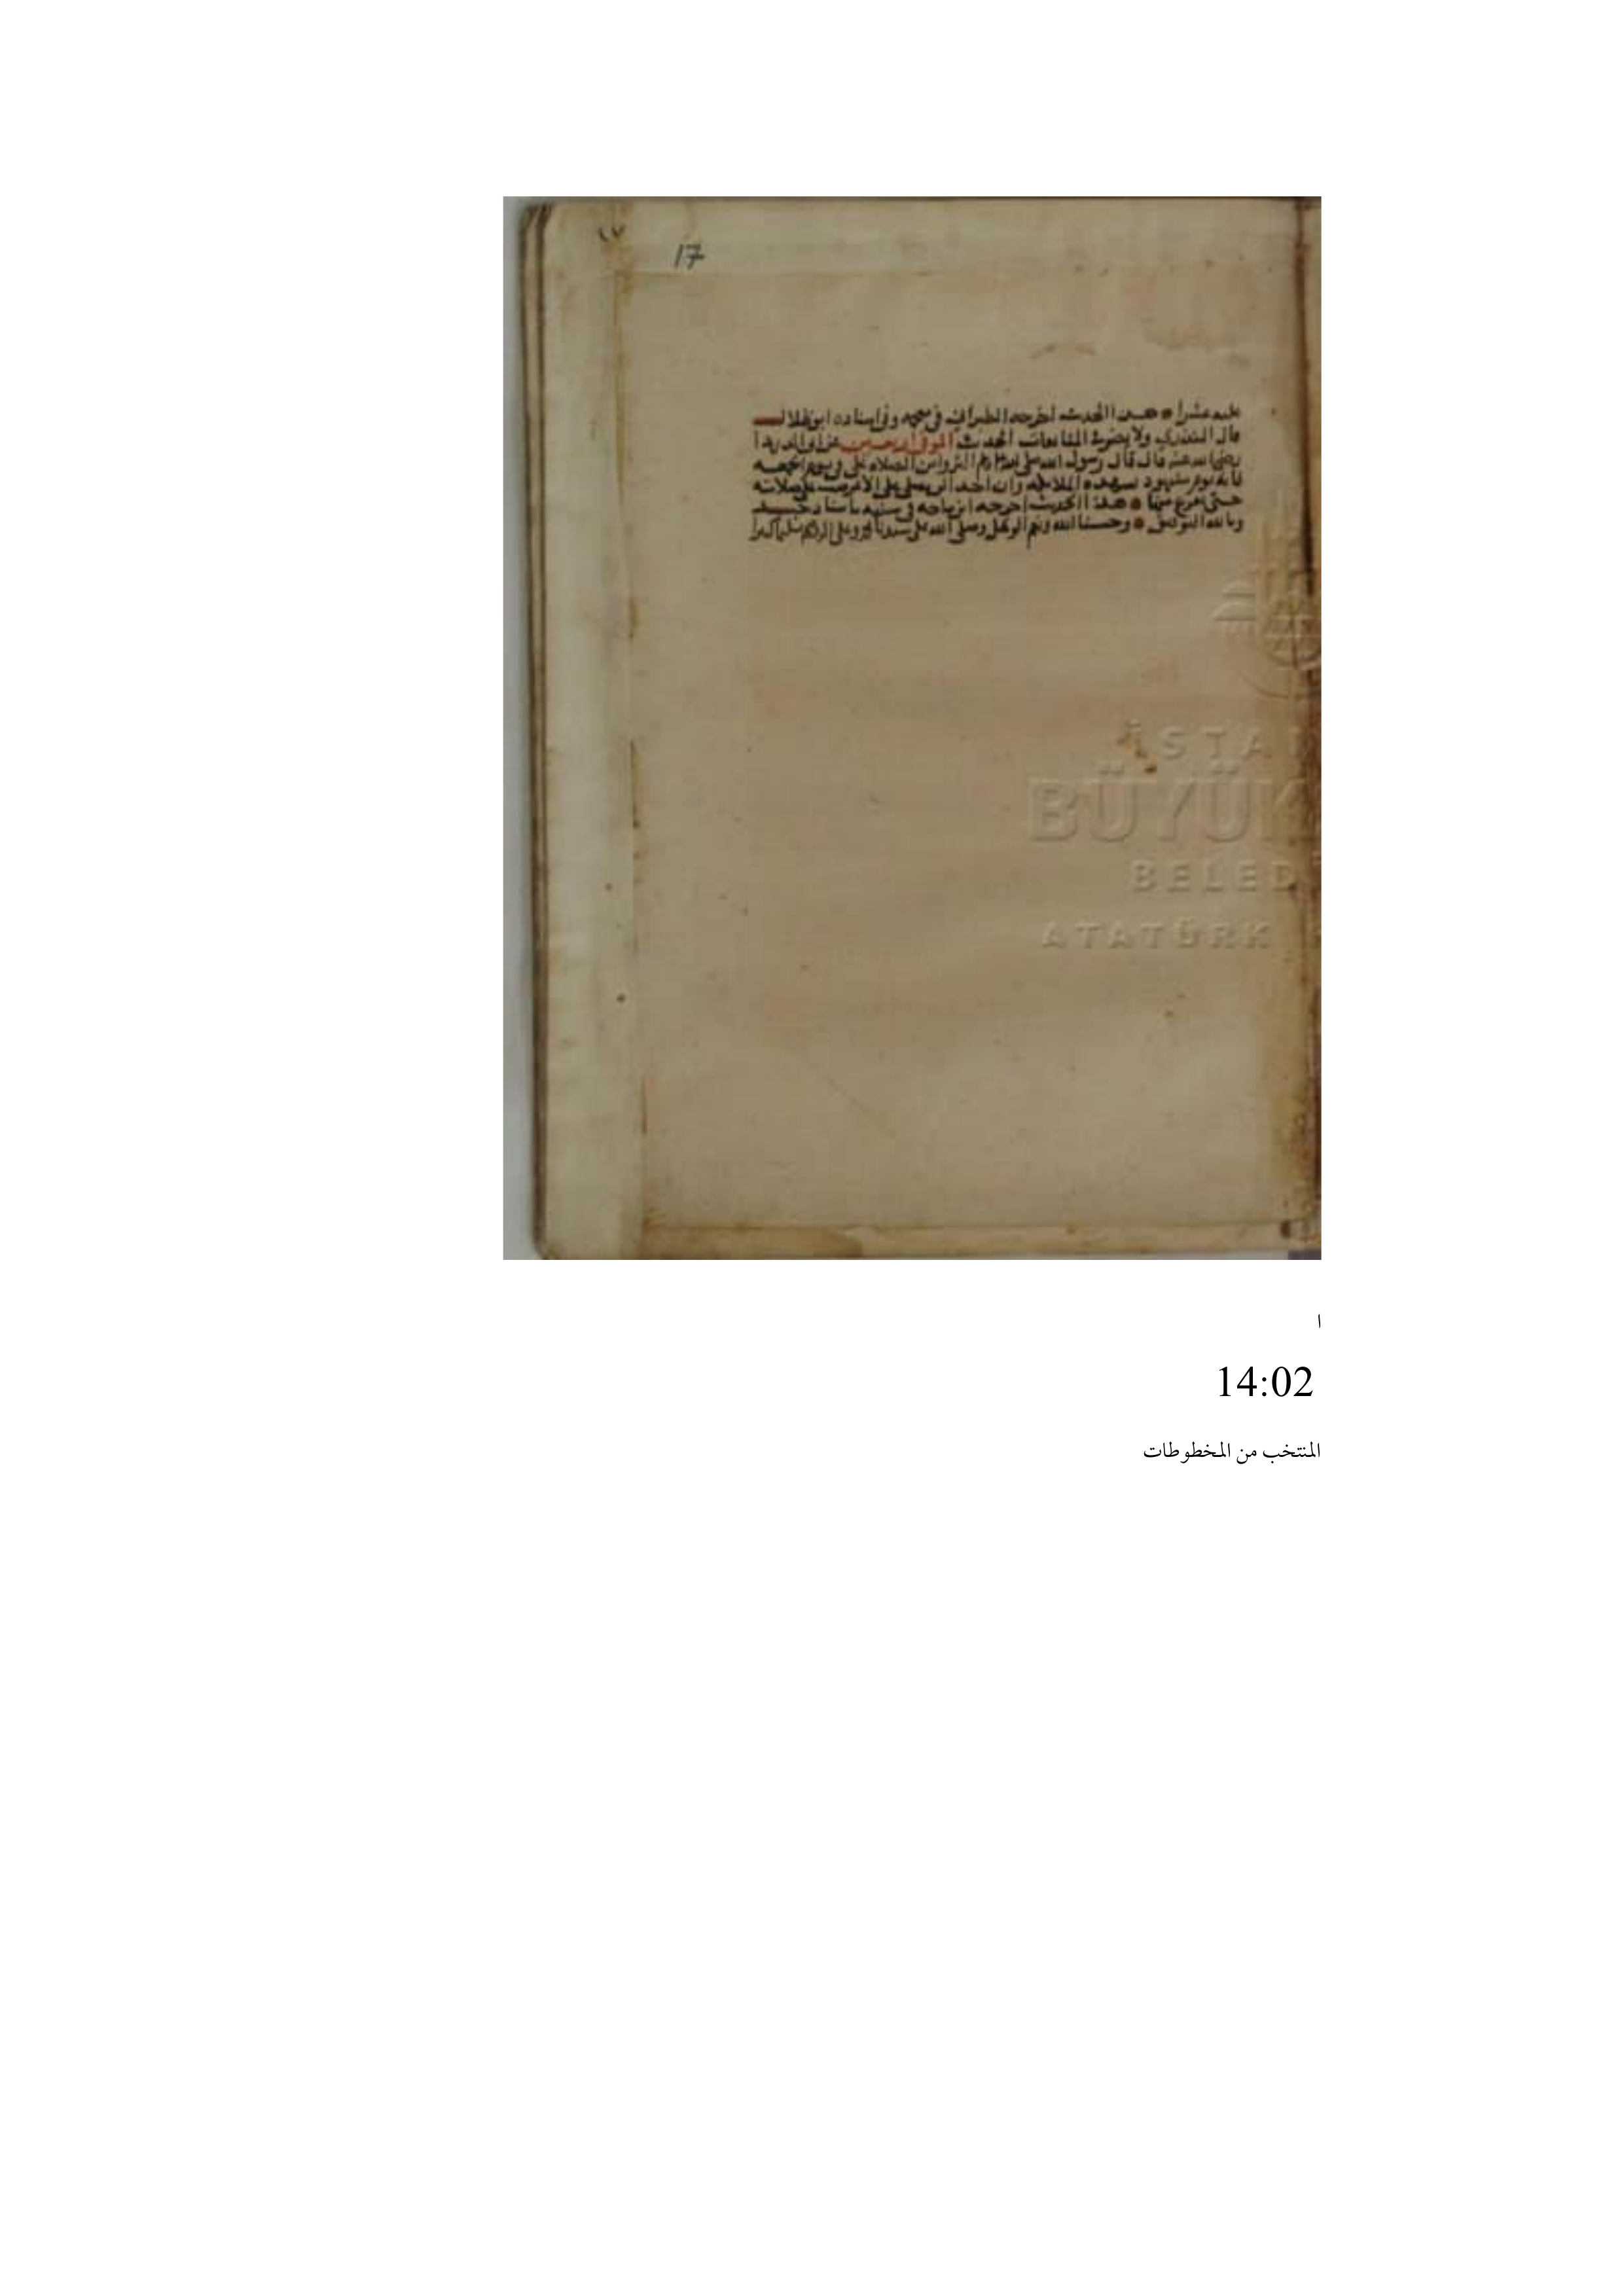 ١٧
17
عليه عشرا هذا الحديث اخرجه الطبراني في معجمه وفي اسناده ابو ظلال
قال المنذري ولا يضر في المتابعات الحديث الموفي اربعين عن ابي الدرداء
رضي الله عنه قال قال رسول الله صلى الله عليه وسلم اكثروا من الصلاة علي في يوم الجمعه
فانه يوم مشهود تشهده الملائكة وان احدا لن يصلي علي الا عرضت علي صلاته
حتى يفرغ منها هذا الحديث اخرجه ابن ماجه في سننه باسناد جيد
وبالله التوفيق وحسبنا الله ونعم الوكيل وصلى الله على سيدنا محمد وعلى اله
İSTA
BÜYÜK
BELED
ATATÜRK
ا
14:02
المنتخب من المخطوطات